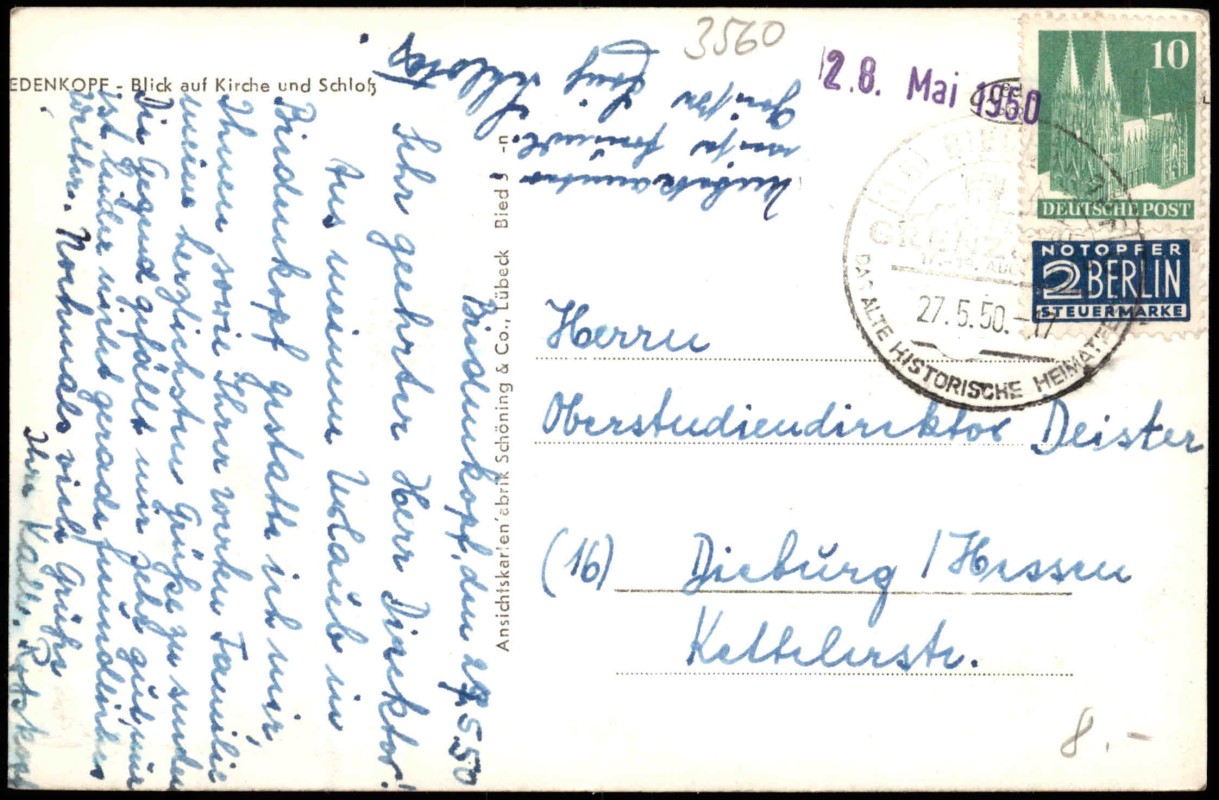 EDENKOPF - Blick auf Kirche und Schloß
3560
28. Mai 1950
10
DEUTSCHE POST
NOTOPFER
2 BERLIN
STEUERMARKE
GRENZ
27.5.50.-17
DAS ALTE HISTORISCHE HEIMATFE
Biedenkopf, den 27.5.50
Sehr geehrter Herr Direktor!
Aus meinem Urlaub in
Biedenkopf gestatte ich mir,
Ihnen sowie Ihrer werten Familie
meine herzlichsten Grüße zu senden
Die Gegend gefällt mir sehr gut, nur
ist leider nicht gerade freundliches
Nochmals viele Grüße
Ihre
Unbekannter
Ansichtskartenfabrik Schöning & Co., Lübeck Bied 3 -n
Herrn
Oberstudiendirektor Deister
(16) Dieburg / Hessen
Kettelerstr.
8.-